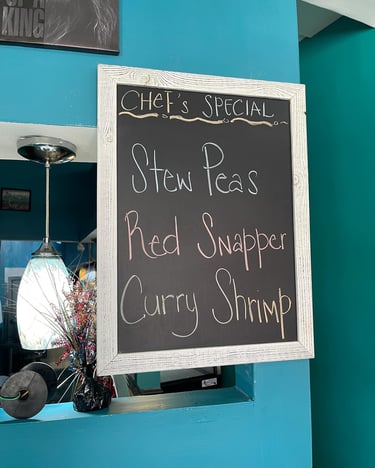 KING
CHEF'S SPECIAL
Stew Peas
Red Snapper
Curry Shrimp